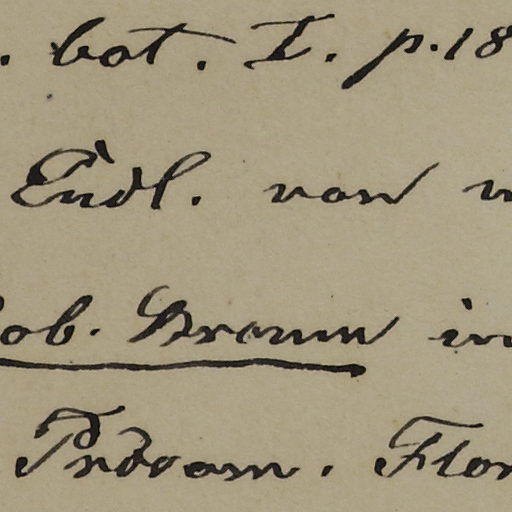 . bot. I. p. 18
Endl. von
ob. Brown in
Prodrom. Flor